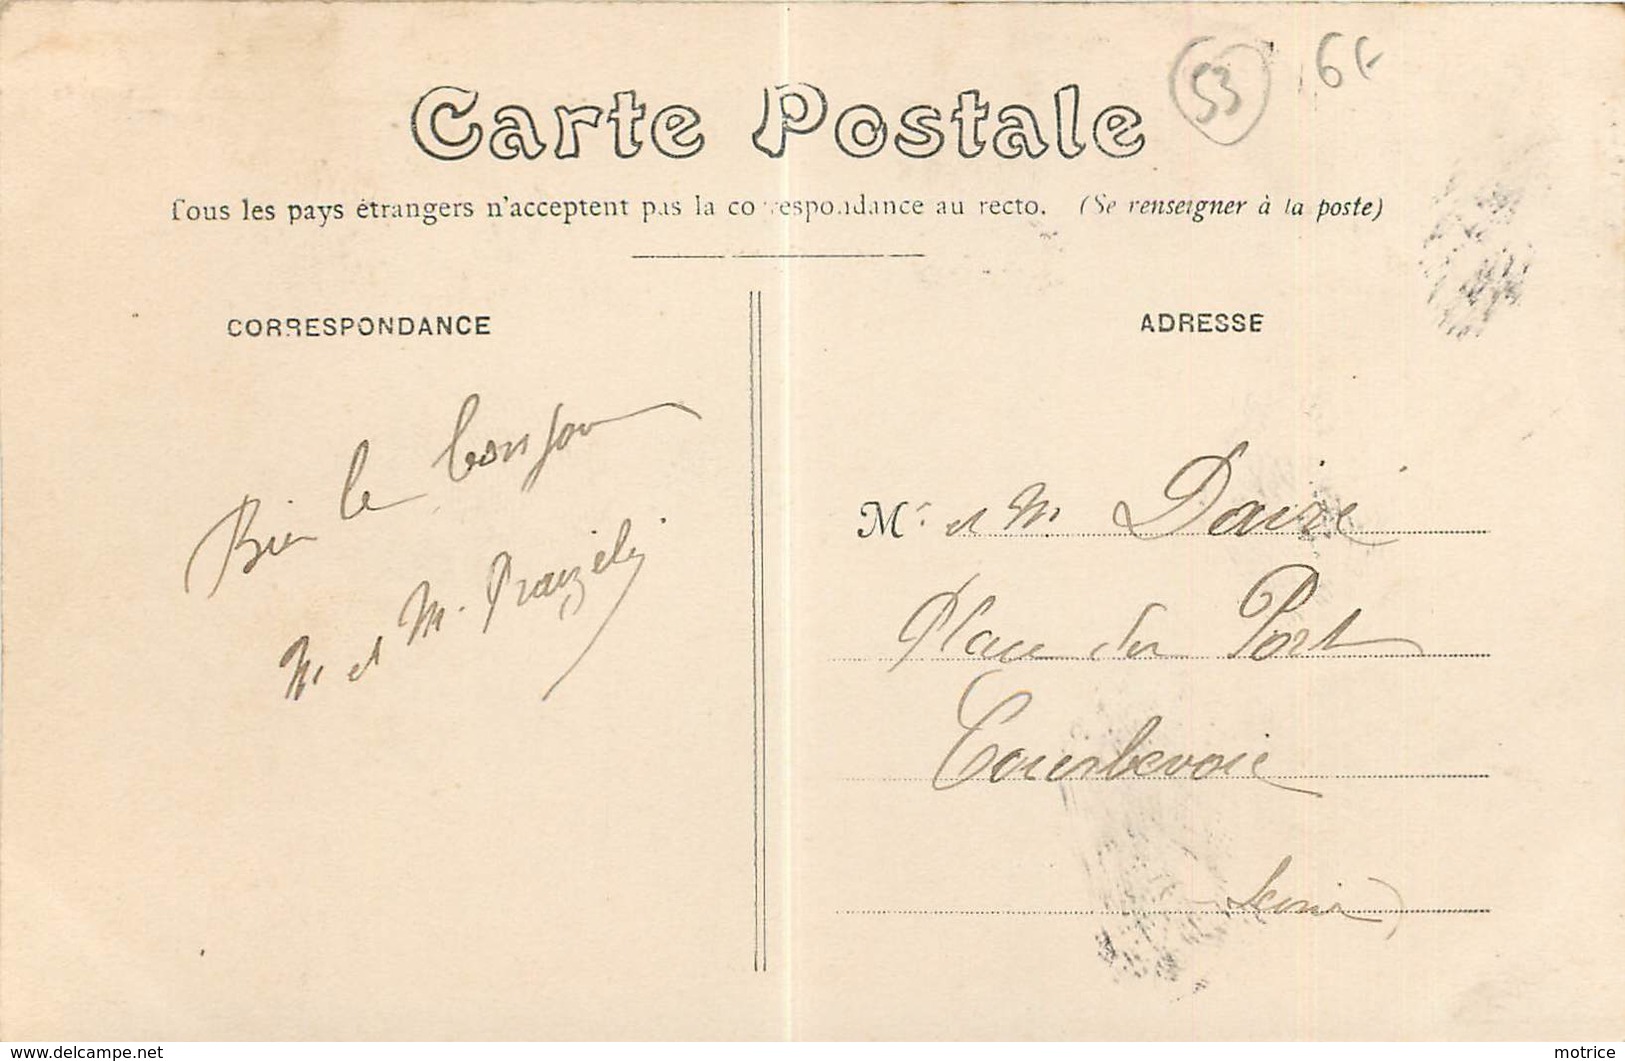 53
6f
Carte Postale
Tous les pays étrangers n'acceptent pas la correspondance au recto. (Se renseigner à la poste)
CORRESPONDANCE
Bien le bonjour
M. et M.
ADRESSE
Mr et M Dairé
Place du Port
Courbevoie
Seine)
www.delcampe.net
motrice